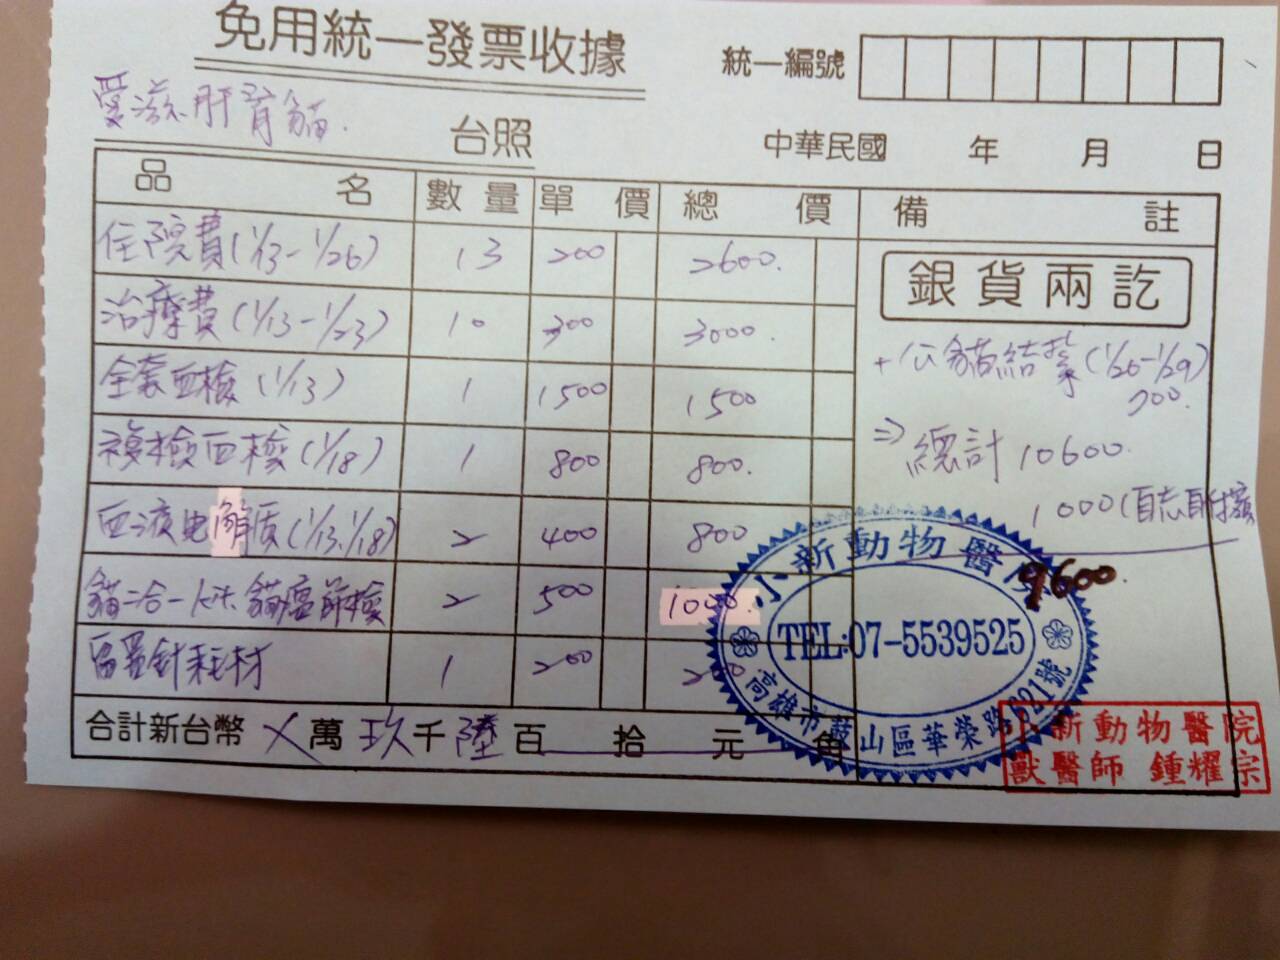 免用統一發票收據
統一編號
愛滋肝腎貓.
台照
中華民國 年 月 日
品名 數量 單價 總價 備註
住院費(1/13-1/26) 13 200 2600.
銀貨兩訖
治療費(1/13-1/23) 10 300 3000.
+公貓結紮(1/26-1/29)
700.
全套血檢(1/13) 1 1500 1500
⇒總計10600.
複檢血檢(1/18) 1 800 800.
1000(自志
血液电解质(1/13.1/18) 2 400 800
9600.
貓二合一kit.貓瘟節檢 2 500 1000.
留置針耗材 1 200 200
合計新台幣 ㄨ萬玖千陸百 拾 元 角
小新動物醫院
TEL:07-5539525
高雄市鼓山區華榮路321號
小新動物醫院
獸醫師 鍾耀宗